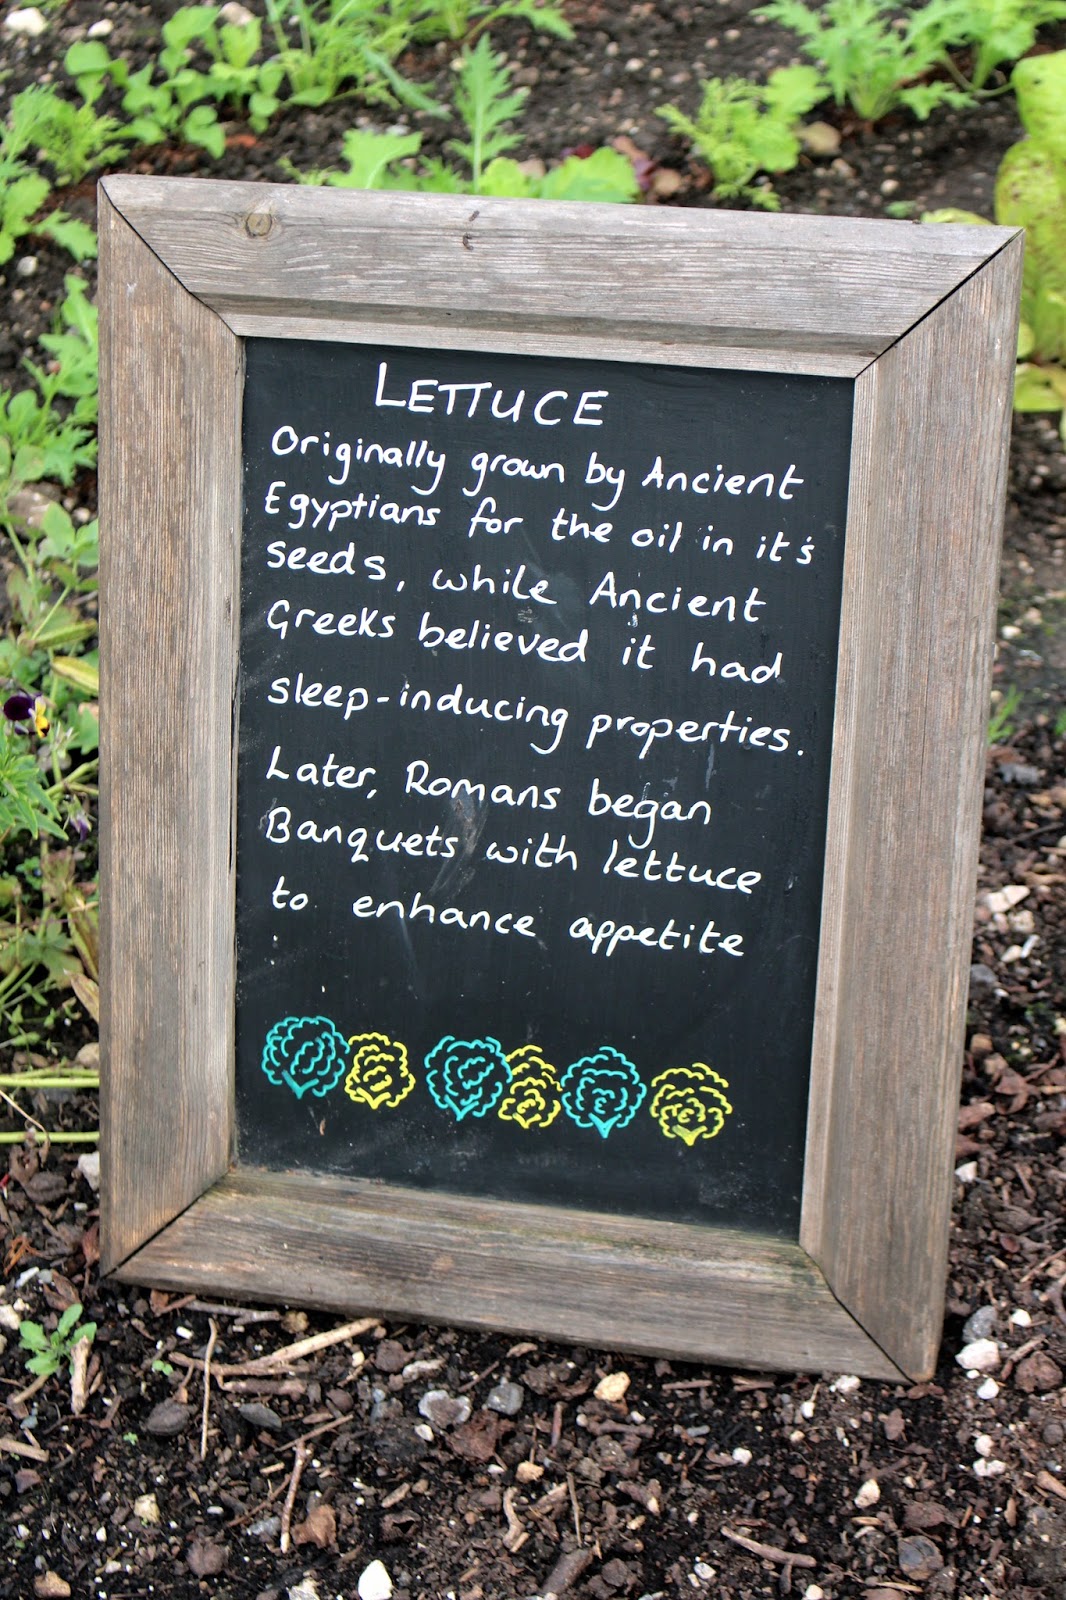 LETTUCE
Originally grown by Ancient
Egyptians for the oil in it's
seeds, while Ancient
Greeks believed it had
sleep-inducing properties.
Later, Romans began
Banquets with lettuce
to enhance appetite